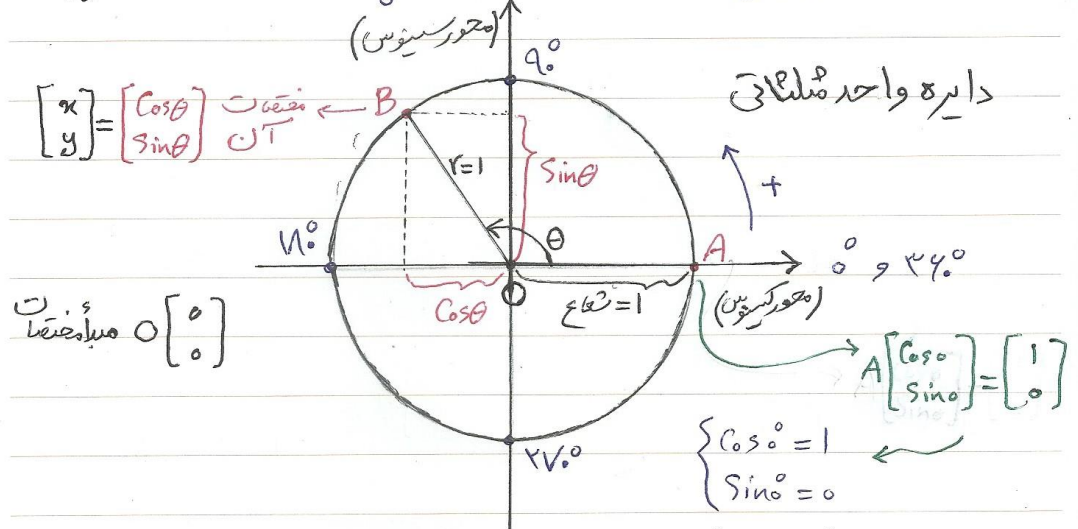 (محور سینوس)
۹۰°
دایره واحد مثلثاتی
[x y] = [Cosθ Sinθ] مختصات آن ← B
r=1
Sinθ
+
۱۸۰°
θ
A
۰° و ۳۶۰°
(محور کسینوس)
Cosθ
O
شعاع=1
مبدأ مختصات O [۰ ۰]
A [Cos۰ Sin۰] = [۱ ۰]
۲۷۰°
Cos۰° = 1
Sin۰° = ۰